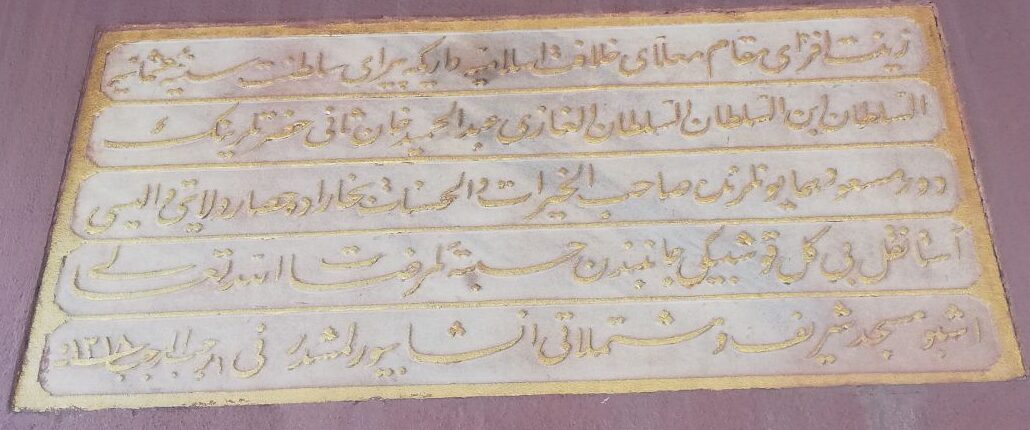 زینت افزای مقام معلای خلافت اسلامیه و اریکه پیرای سلطنت سنیه عثمانیه
السلطان ابن السلطان السلطان الغازی عبد الحمید خان ثانی حضرتلرینک
دور مسعود همایونلرنده صاحب الخیرات والحسنات بخاراده حصار ولایتی والیسی
آستانقل بی کل قوشبیکی جانبندن حسبة لمرضات الله تعالی
اشبو مسجد شریف ومشتملاتی انشا بیورلمشدر فی رجب ١٣١٨